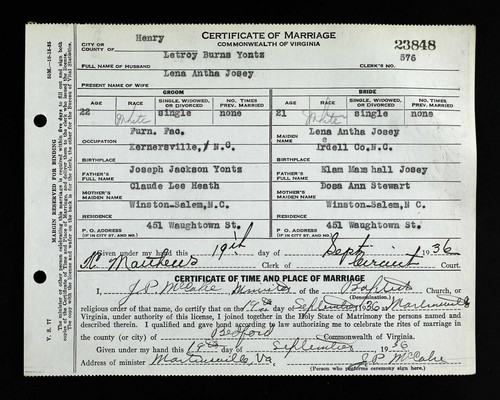 CERTIFICATE OF MARRIAGE
COMMONWEALTH OF VIRGINIA
CITY OR COUNTY OF Henry
23848
Letroy Burns Yontz 576
FULL NAME OF HUSBAND CLERK'S NO.
Lena Antha Josey
PRESENT NAME OF WIFE
GROOM BRIDE
AGE RACE SINGLE, WIDOWED, OR DIVORCED NO. TIMES PREV. MARRIED AGE RACE SINGLE, WIDOWED, OR DIVORCED NO. TIMES PREV. MARRIED
22 White single none 21 White single none
OCCUPATION Furn. Fac. MAIDEN NAME Lena Antha Josey
BIRTHPLACE Kernersville, N.C. BIRTHPLACE Irdell Co.N.C.
e
FATHER'S FULL NAME Joseph Jackson Yontz FATHER'S FULL NAME Elam Marshall Josey
MOTHER'S MAIDEN NAME Claude Lee Heath MOTHER'S MAIDEN NAME Dosa Ann Stewart
Winston-Salem,N.C. Winston-Salem, N.C.
P. O. ADDRESS (IF IN CITY ST. AND NO.) 451 Waughtown St. P. O. ADDRESS (IF IN CITY ST. AND NO.) 451 Waughtown St.
Given under my hand this 19th day of Sept 1936
Matthews Clerk of Circuit Court.
CERTIFICATE OF TIME AND PLACE OF MARRIAGE
I, J.P. McCabe Minister of the Baptist Church, or
(Denomination.)
religious order of that name, do certify that on the 19th day of September, 1936, Martinsville
Virginia, under authority of this license, I joined together in the Holy State of Matrimony the persons named and
described therein. I qualified and gave bond according to law authorizing me to celebrate the rites of marriage in
the county (or city) of Bedford Commonwealth of Virginia.
Given under my hand this 19th day of September 1936
Address of minister Martinsville, Va. J.P. McCabe
(Person who performs ceremony sign here.)
V. S. 77
MARGIN RESERVED FOR BINDING